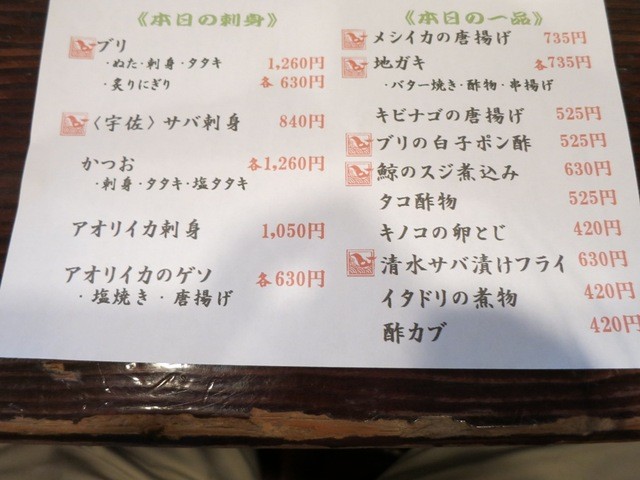 《本日の刺身》
ブリ
・ぬた・刺身・タタキ 1,260円
・炙りにぎり 各630円
〈宇佐〉サバ刺身 840円
かつお 各1,260円
・刺身・タタキ・塩タタキ
アオリイカ刺身 1,050円
アオリイカのゲソ 各630円
・塩焼き・唐揚げ
《本日の一品》
メシイカの唐揚げ 735円
地ガキ 各735円
・バター焼き・酢物・串揚げ
キビナゴの唐揚げ 525円
ブリの白子ポン酢 525円
鯨のスジ煮込み 630円
タコ酢物 525円
キノコの卵とじ 420円
清水サバ漬けフライ 630円
イタドリの煮物 420円
酢カブ 420円